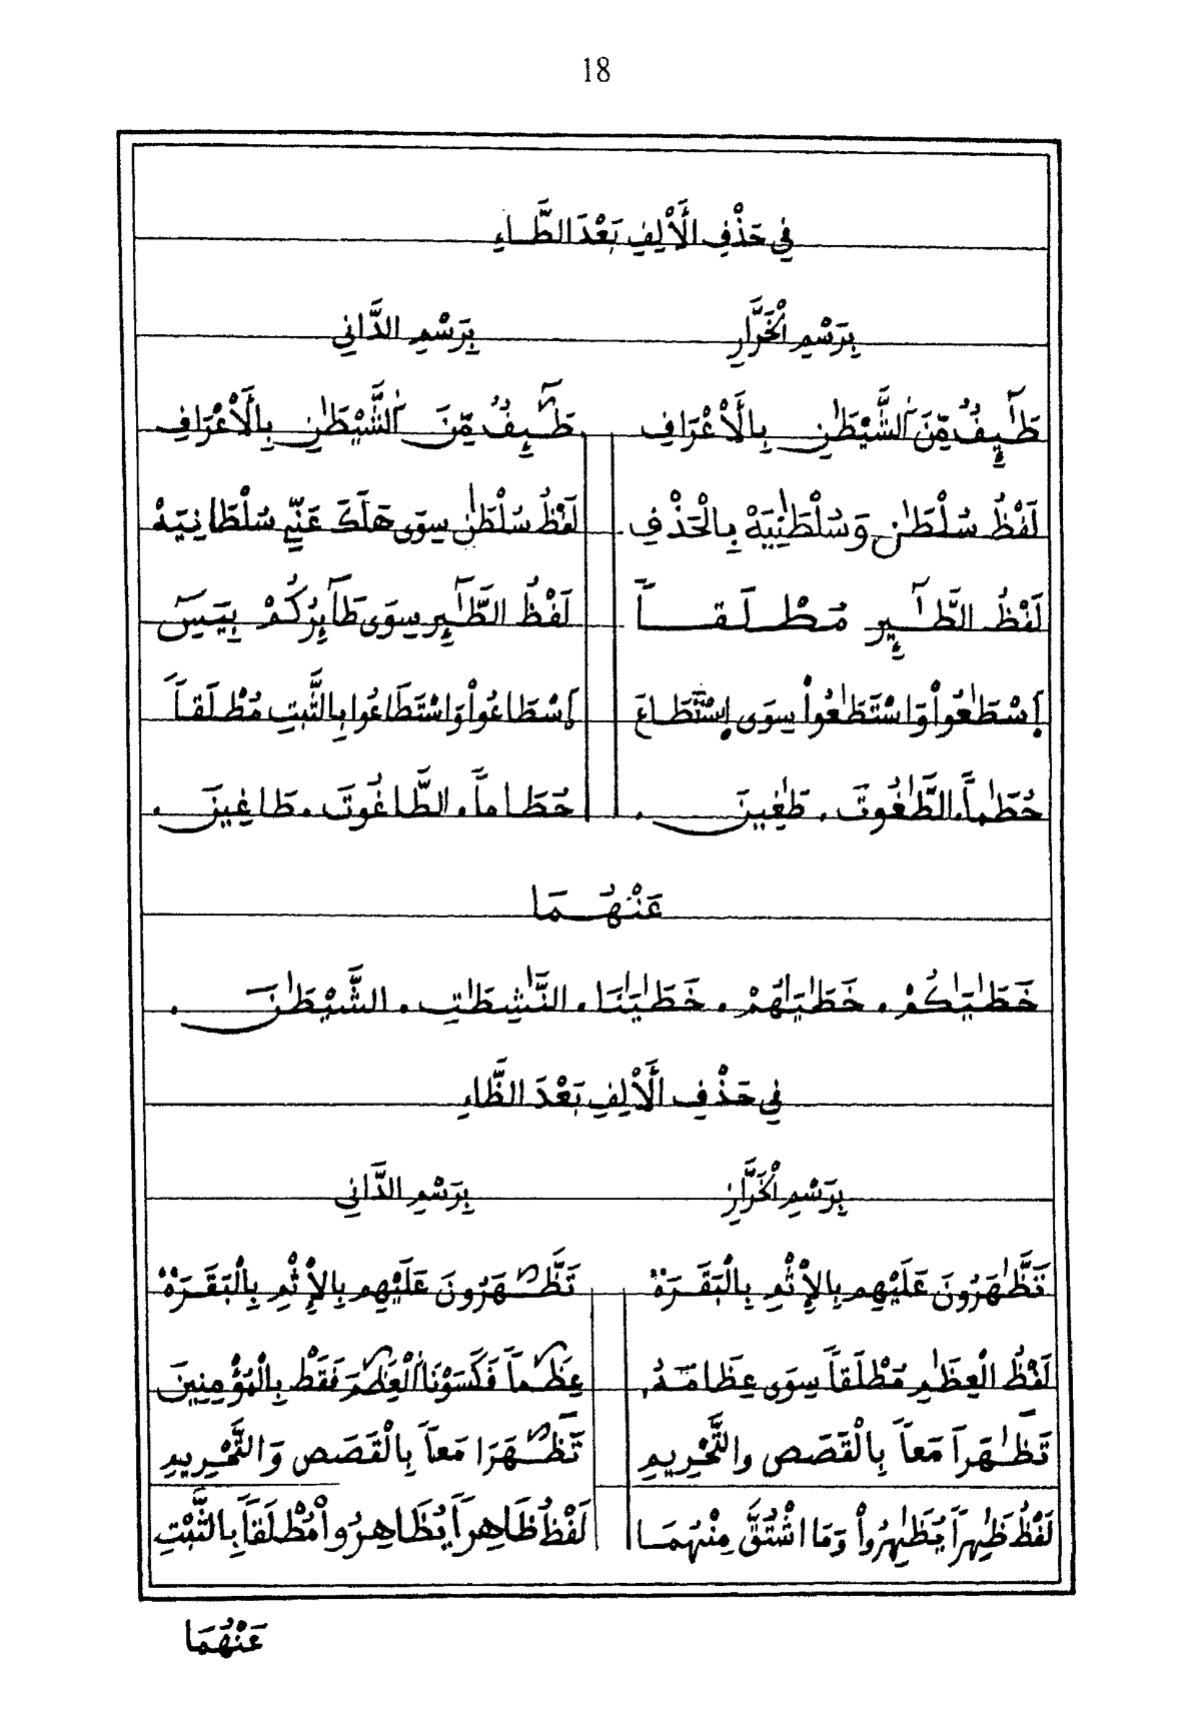 18
فِي حَذْفِ الْأَلِفِ بَعْدَ الطَّاءِ
بِرَسْمِ الْخَرَّازِ بِرَسْمِ الدَّانِي
طَٰٓئِفٌ مِّنَ اَ۬لشَّيْطَٰنِ بِالْأَعْرَافِ طَٰٓئِفٌ مِّنَ اَ۬لشَّيْطَٰنِ بِالْأَعْرَافِ
لَفْظُ سُلْطَٰنٍ وَسُلْطَٰنِيَهْ بِالْحَذْفِ. لَفْظُ سُلْطَٰنٍ سِوَى هَلَكَ عَنِّي سُلْطَانِيَهْ
لَفْظُ الطَّٰٓئِرِ مُطْلَقاً لَفْظُ الطَّٰٓئِرِ سِوَى طَآئِرُكُمْ بِيَسٓ
اِسْطَٰعُواْ وَاسْتَطَٰعُواْ سِوَى اِسْتَطَاعَ اِسْطَاعُواْ وَاسْتَطَاعُوا بِالثَّبْتِ مُطْلَقاً
حُطَٰماً. الطَّٰغُوتَ. طَٰغِينَ. حُطَاماً. الطَّاغُوتَ. طَاغِينَ.
عَنْهُمَا
خَطَٰيَٰكُمْ. خَطَٰيَٰهُمْ. خَطَٰيَٰنَا. النَّٰشِطَٰتِ. الشَّيْطَٰنَ.
فِي حَذْفِ الْأَلِفِ بَعْدَ الظَّاءِ
بِرَسْمِ الْخَرَّازِ بِرَسْمِ الدَّانِي
تَظَّٰهَرُونَ عَلَيْهِم بِالْإِثْمِ بِالْبَقَرَةْ تَظَّٰهَرُونَ عَلَيْهِم بِالْإِثْمِ بِالْبَقَرَةْ
لَفْظُ الْعِظَٰمِ مُطْلَقاً سِوَى عِظَامَهُ. عِظَٰماً فَكَسَوْنَا اَ۬لْعِظَٰمَ فَقَطْ بِالْمُؤْمِنِينَ
تَظَّٰهَرَا مَعاً بِالْقَصَصِ والتَّحْرِيمِ تَظَّٰهَرَا مَعاً بِالْقَصَصِ وَالتَّحْرِيمِ
لَفْظُ ظَٰهِراً يُظَٰهِرُواْ وَمَا اشْتُقَّ مِنْهُمَا لَفْظُ ظَاهِراً يُظَاهِرُواْ مُطْلَقاً بِالثَّبْتِ
عَنْهُمَا